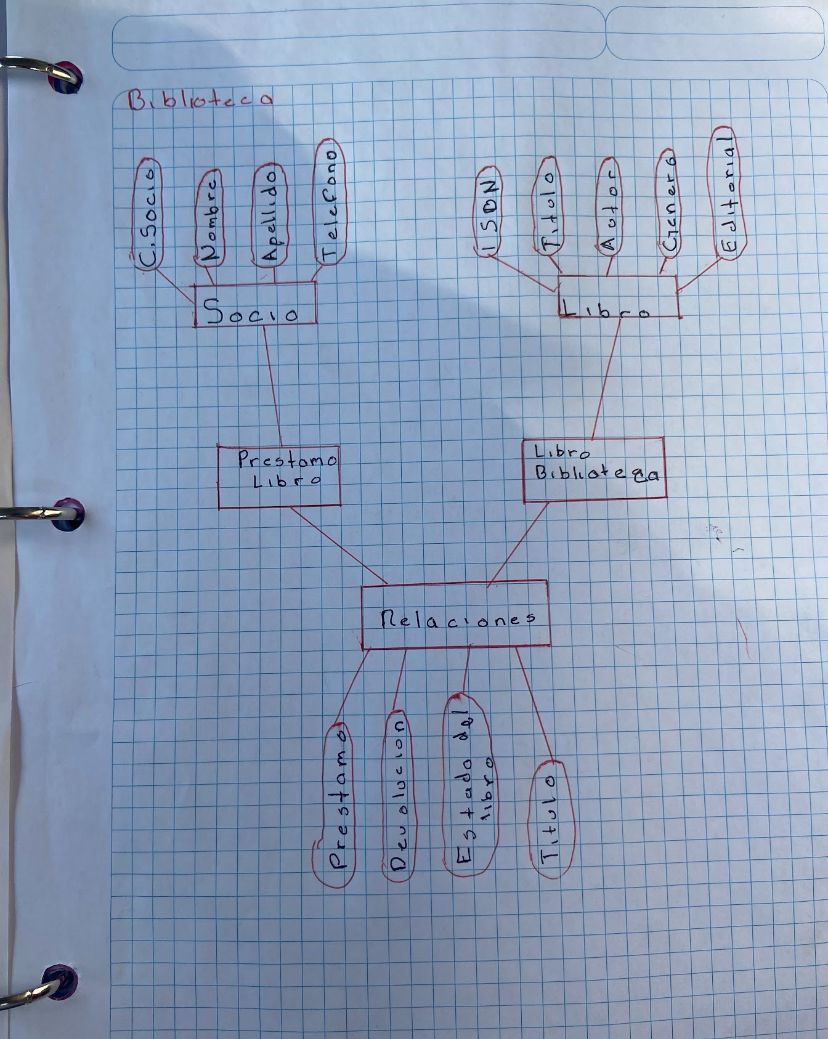 Biblioteca
C. Socio
Nombre
Apellido
Telefono
ISDN
Titulo
Autor
Genero
Editorial
Socio
Libro
Prestamo
Libro
Libro
Biblioteca
Relaciones
Prestamo
Devolucion
Estado del
libro
Titulo